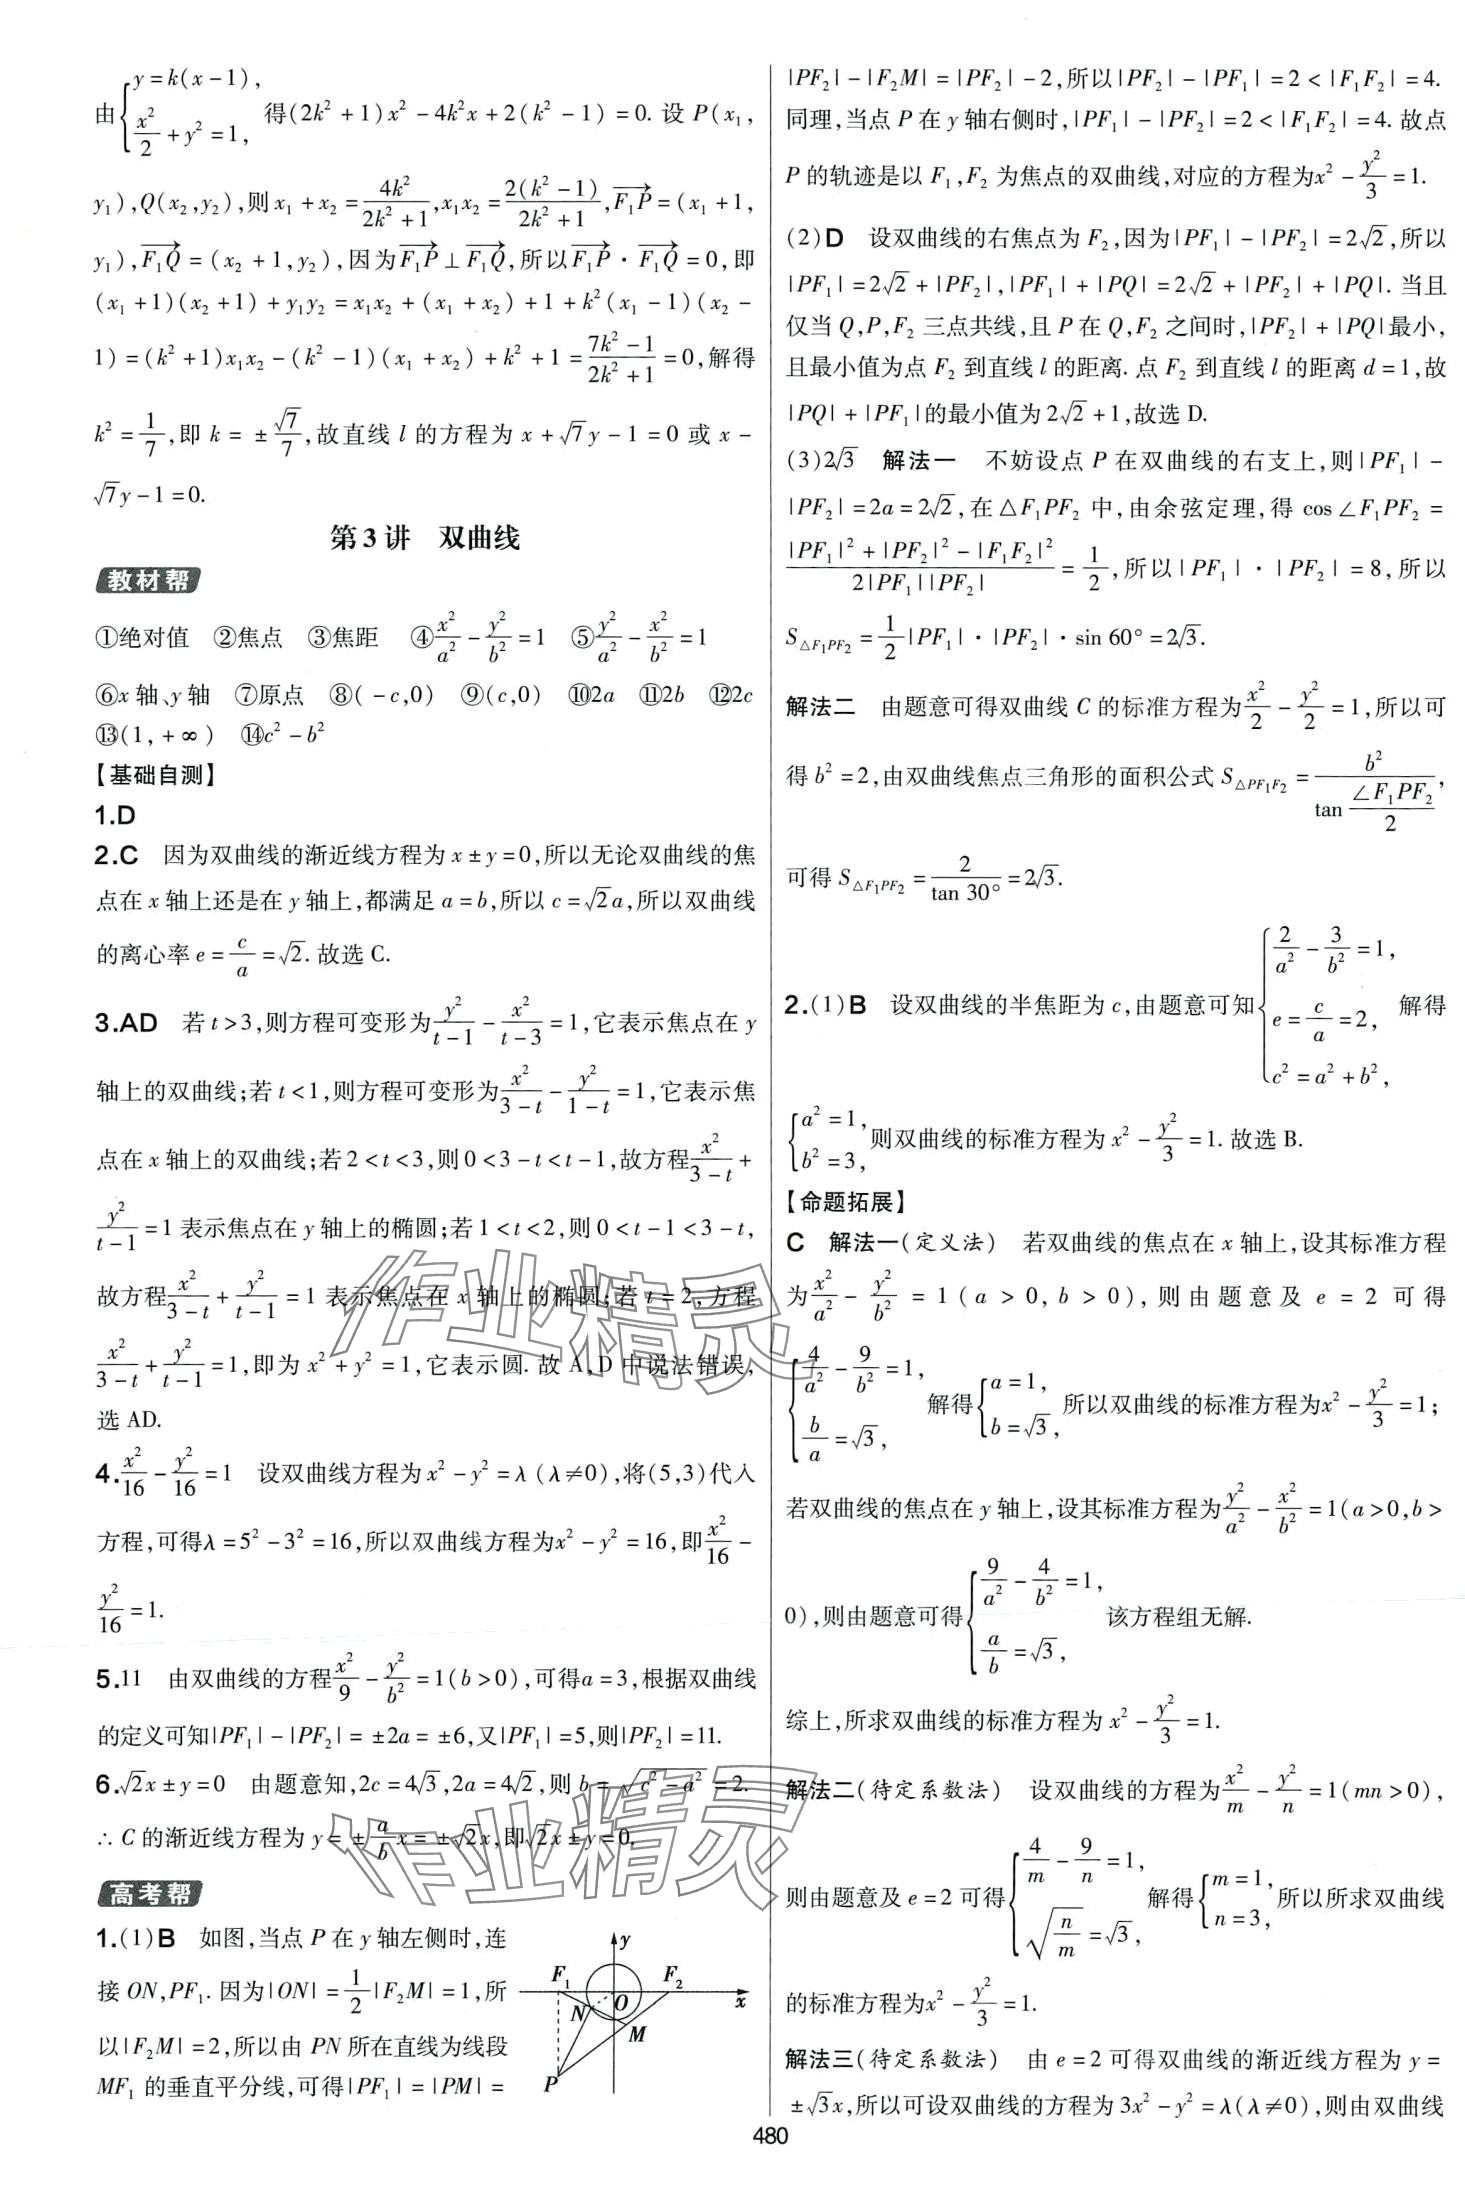 由{y=k(x-1), x²/2+y²=1, 得(2k²+1)x²-4k²x+2(k²-1)=0. 设 P(x₁,
y₁),Q(x₂,y₂),则x₁+x₂=4k²/(2k²+1),x₁x₂=2(k²-1)/(2k²+1),F₁P→=(x₁+1,
y₁),F₁Q→=(x₂+1,y₂),因为F₁P→⊥F₁Q→,所以F₁P→·F₁Q→=0,即
(x₁+1)(x₂+1)+y₁y₂=x₁x₂+(x₁+x₂)+1+k²(x₁-1)(x₂-
1)=(k²+1)x₁x₂-(k²-1)(x₁+x₂)+k²+1=(7k²-1)/(2k²+1)=0,解得
k²=1/7,即 k=±√7/7,故直线 l 的方程为 x+√7y-1=0 或 x-
√7y-1=0.
第3讲 双曲线
教材帮
①绝对值 ②焦点 ③焦距 ④x²/a²-y²/b²=1 ⑤y²/a²-x²/b²=1
⑥x 轴、y 轴 ⑦原点 ⑧(-c,0) ⑨(c,0) ⑩2a ⑪2b ⑫2c
⑬(1,+∞) ⑭c²-b²
【基础自测】
1.D
2.C 因为双曲线的渐近线方程为 x±y=0,所以无论双曲线的焦
点在 x 轴上还是在 y 轴上,都满足 a=b,所以 c=√2a,所以双曲线
的离心率 e=c/a=√2. 故选 C.
3.AD 若 t>3,则方程可变形为y²/(t-1)-x²/(t-3)=1,它表示焦点在 y
轴上的双曲线;若 t<1,则方程可变形为x²/(3-t)-y²/(1-t)=1,它表示焦
点在 x 轴上的双曲线;若 2<t<3,则 0<3-t<t-1,故方程x²/(3-t)+
y²/(t-1)=1 表示焦点在 y 轴上的椭圆;若 1<t<2,则 0<t-1<3-t,
故方程x²/(3-t)+y²/(t-1)=1 表示焦点在 x 轴上的椭圆;若 t=2,方程
x²/(3-t)+y²/(t-1)=1,即为 x²+y²=1,它表示圆. 故 A,D 中说法错误,
选 AD.
4.x²/16-y²/16=1 设双曲线方程为 x²-y²=λ(λ≠0),将(5,3)代入
方程,可得λ=5²-3²=16,所以双曲线方程为x²-y²=16,即x²/16-
y²/16=1.
5.11 由双曲线的方程x²/9-y²/b²=1(b>0),可得a=3,根据双曲线
的定义可知|PF₁|-|PF₂|=±2a=±6,又|PF₁|=5,则|PF₂|=11.
6.√2x±y=0 由题意知,2c=4√3,2a=4√2,则 b=√(c²-a²)=2.
∴C 的渐近线方程为 y=±(a/b)x=±√2x,即√2x±y=0.
高考帮
1.(1)B 如图,当点 P 在 y 轴左侧时,连
接 ON,PF₁. 因为|ON|=1/2|F₂M|=1,所
以|F₂M|=2,所以由 PN 所在直线为线段
MF₁ 的垂直平分线,可得|PF₁|=|PM|=
y
F₁
F₂
N
O
x
M
P
|PF₂|-|F₂M|=|PF₂|-2,所以|PF₂|-|PF₁|=2<|F₁F₂|=4.
同理,当点 P 在 y 轴右侧时,|PF₁|-|PF₂|=2<|F₁F₂|=4. 故点
P 的轨迹是以 F₁,F₂ 为焦点的双曲线,对应的方程为x²-y²/3=1.
(2)D 设双曲线的右焦点为 F₂,因为|PF₁|-|PF₂|=2√2,所以
|PF₁|=2√2+|PF₂|,|PF₁|+|PQ|=2√2+|PF₂|+|PQ|. 当且
仅当 Q,P,F₂ 三点共线,且 P 在 Q,F₂ 之间时,|PF₂|+|PQ|最小,
且最小值为点 F₂ 到直线 l 的距离. 点 F₂ 到直线 l 的距离 d=1,故
|PQ|+|PF₁|的最小值为 2√2+1,故选 D.
(3)2√3 解法一 不妨设点 P 在双曲线的右支上,则|PF₁|-
|PF₂|=2a=2√2,在△F₁PF₂ 中,由余弦定理,得 cos∠F₁PF₂=
(|PF₁|²+|PF₂|²-|F₁F₂|²)/(2|PF₁||PF₂|)=1/2,所以|PF₁|·|PF₂|=8,所以
S△F₁PF₂=1/2|PF₁|·|PF₂|·sin 60°=2√3.
解法二 由题意可得双曲线 C 的标准方程为x²/2-y²/2=1,所以可
得 b²=2,由双曲线焦点三角形的面积公式 S△PF₁F₂=b²/tan(∠F₁PF₂/2),
可得 S△F₁PF₂=2/tan 30°=2√3.
2.(1)B 设双曲线的半焦距为 c,由题意可知{2/a²-3/b²=1, e=c/a=2, c²=a²+b², 解得
{a²=1, b²=3, 则双曲线的标准方程为 x²-y²/3=1. 故选 B.
【命题拓展】
C 解法一(定义法) 若双曲线的焦点在 x 轴上,设其标准方程
为x²/a²-y²/b²=1(a>0,b>0),则由题意及 e=2 可得
{4/a²-9/b²=1, b/a=√3, 解得{a=1, b=√3, 所以双曲线的标准方程为x²-y²/3=1;
若双曲线的焦点在 y 轴上,设其标准方程为y²/a²-x²/b²=1(a>0,b>
0),则由题意可得{9/a²-4/b²=1, a/b=√3, 该方程组无解.
综上,所求双曲线的标准方程为 x²-y²/3=1.
解法二(待定系数法) 设双曲线的方程为x²/m-y²/n=1(mn>0),
则由题意及 e=2 可得{4/m-9/n=1, √(n/m)=√3, 解得{m=1, n=3, 所以所求双曲线
的标准方程为x²-y²/3=1.
解法三(待定系数法) 由 e=2 可得双曲线的渐近线方程为 y=
±√3x,所以可设双曲线的方程为 3x²-y²=λ(λ≠0),则由双曲线
480
作业精灵
作业精灵